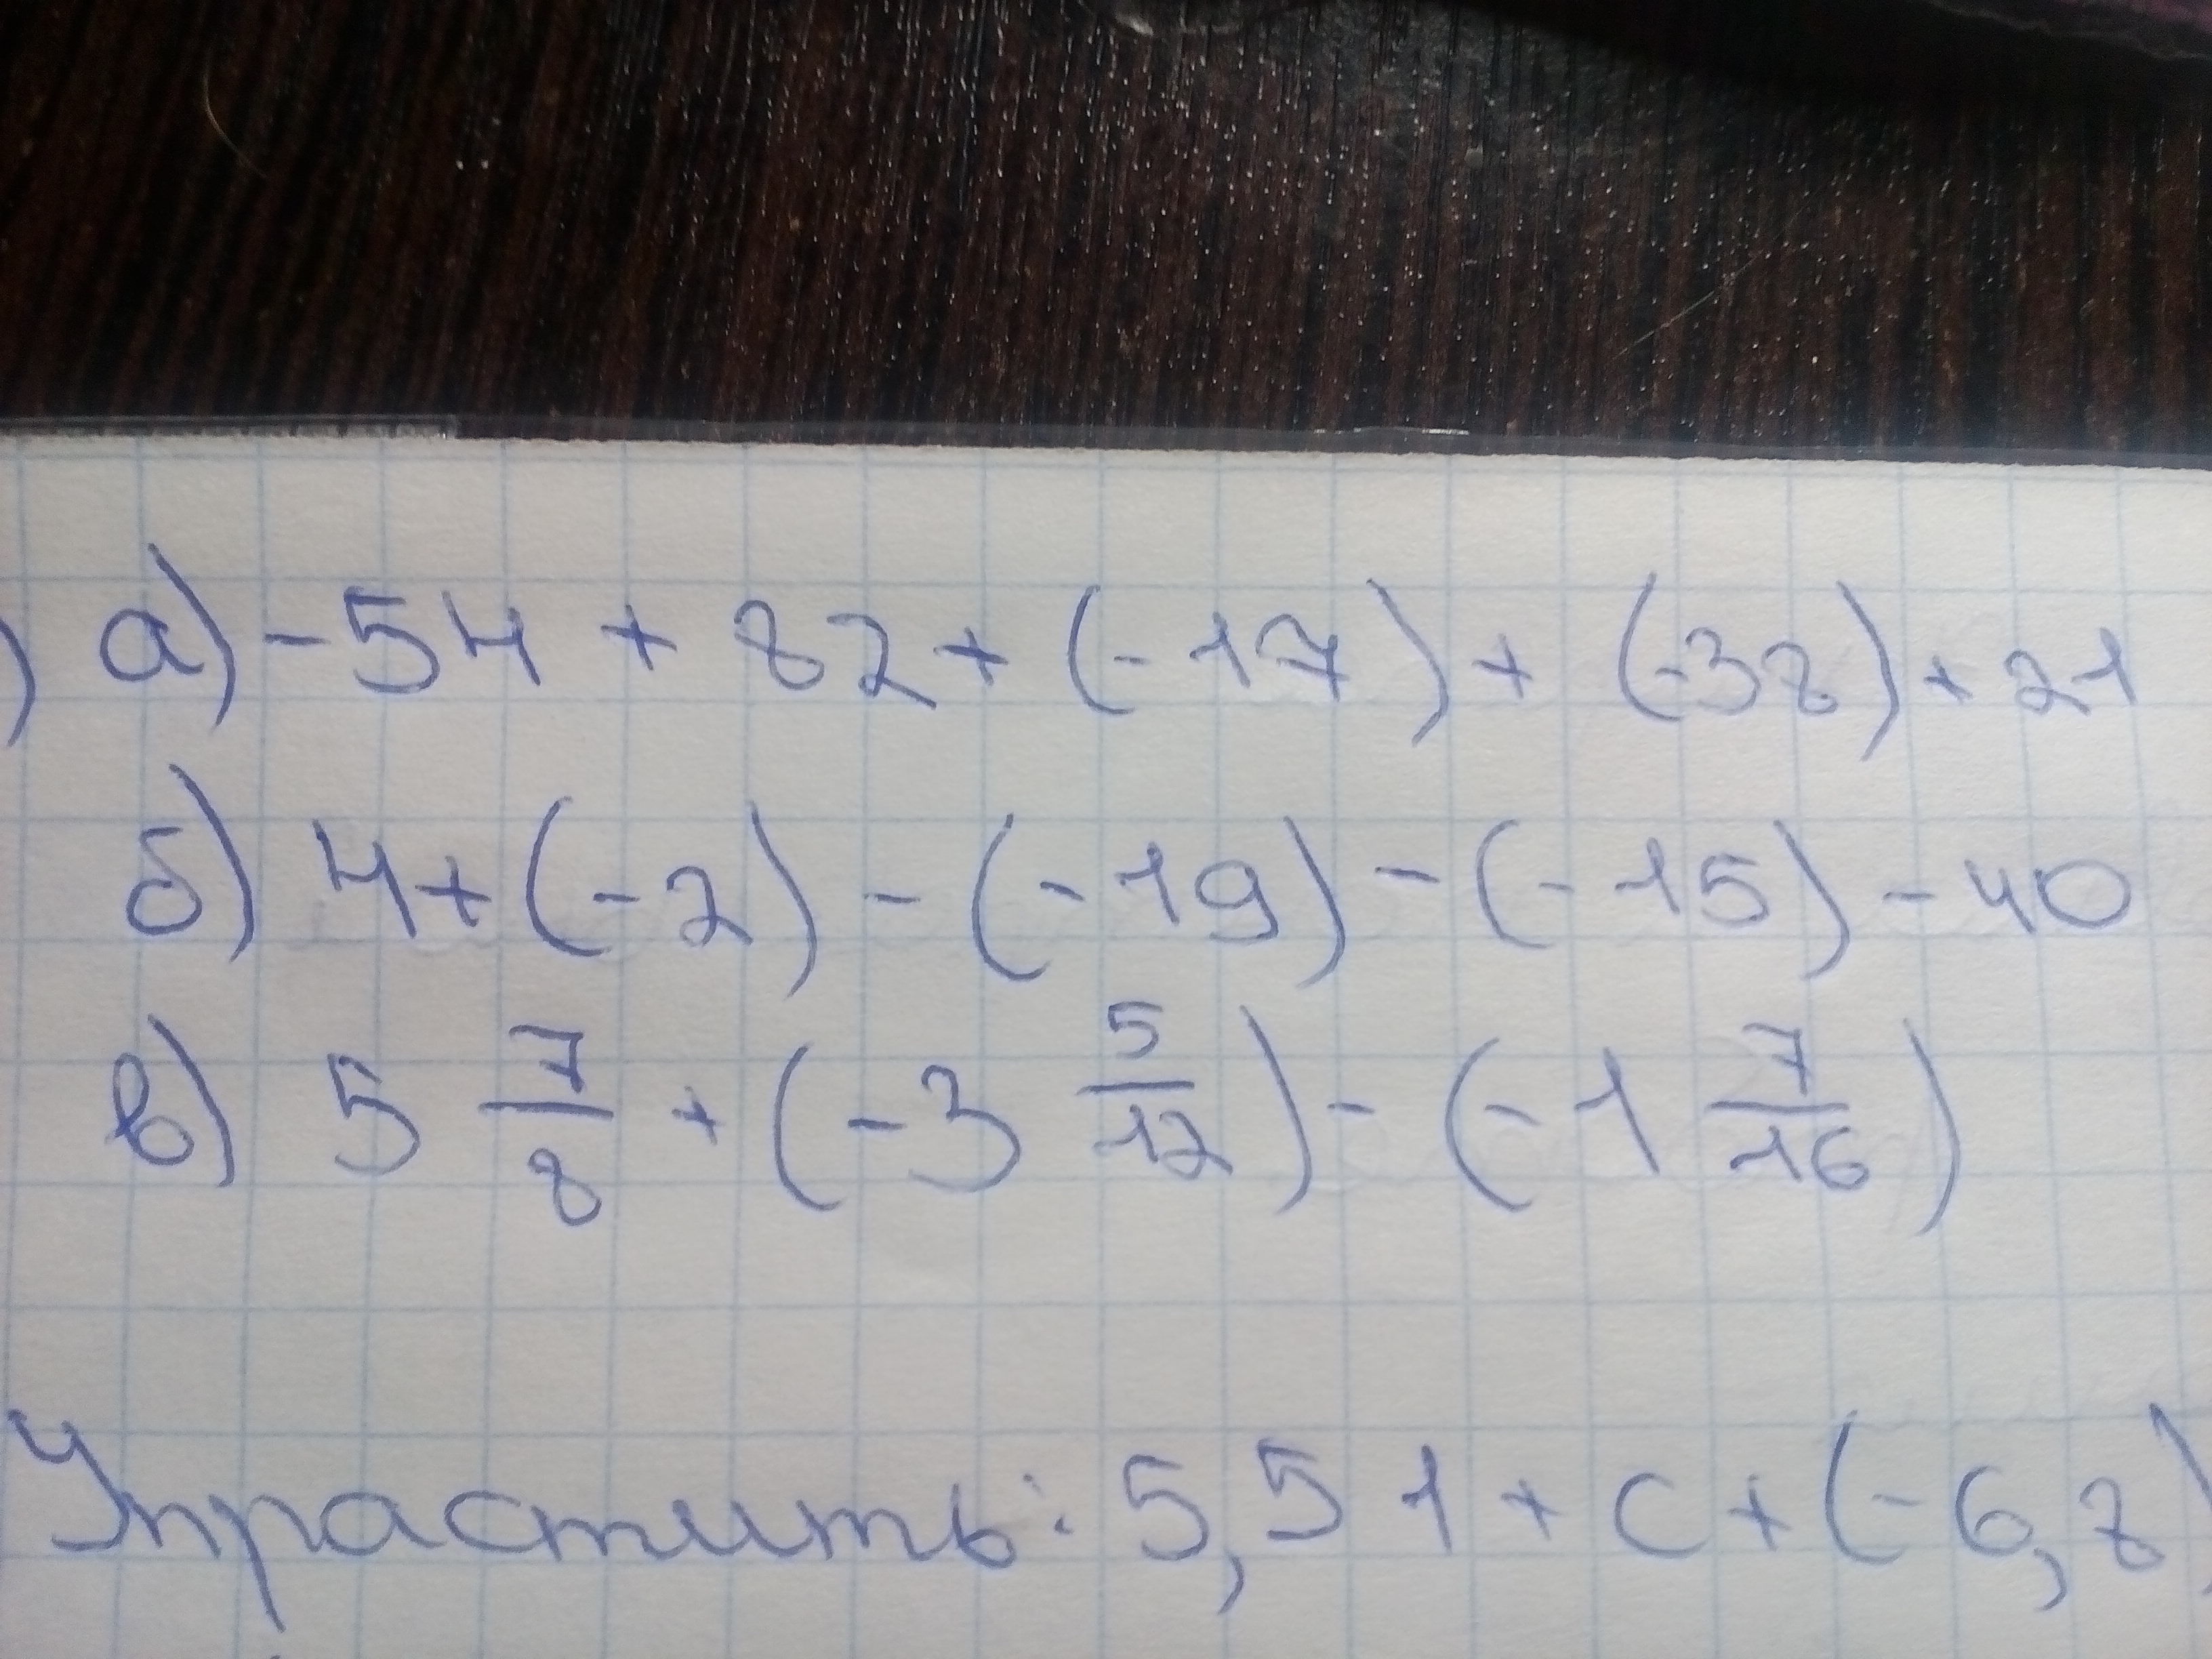 ) а) -54 + 82 + (-17) + (-38) + 21
б) 4 + (-2) - (-19) - (-15) - 40
в) 5 7/8 + (-3 5/12) - (-1 7/16)
Упрастить: 5,51 + с + (-6,8)